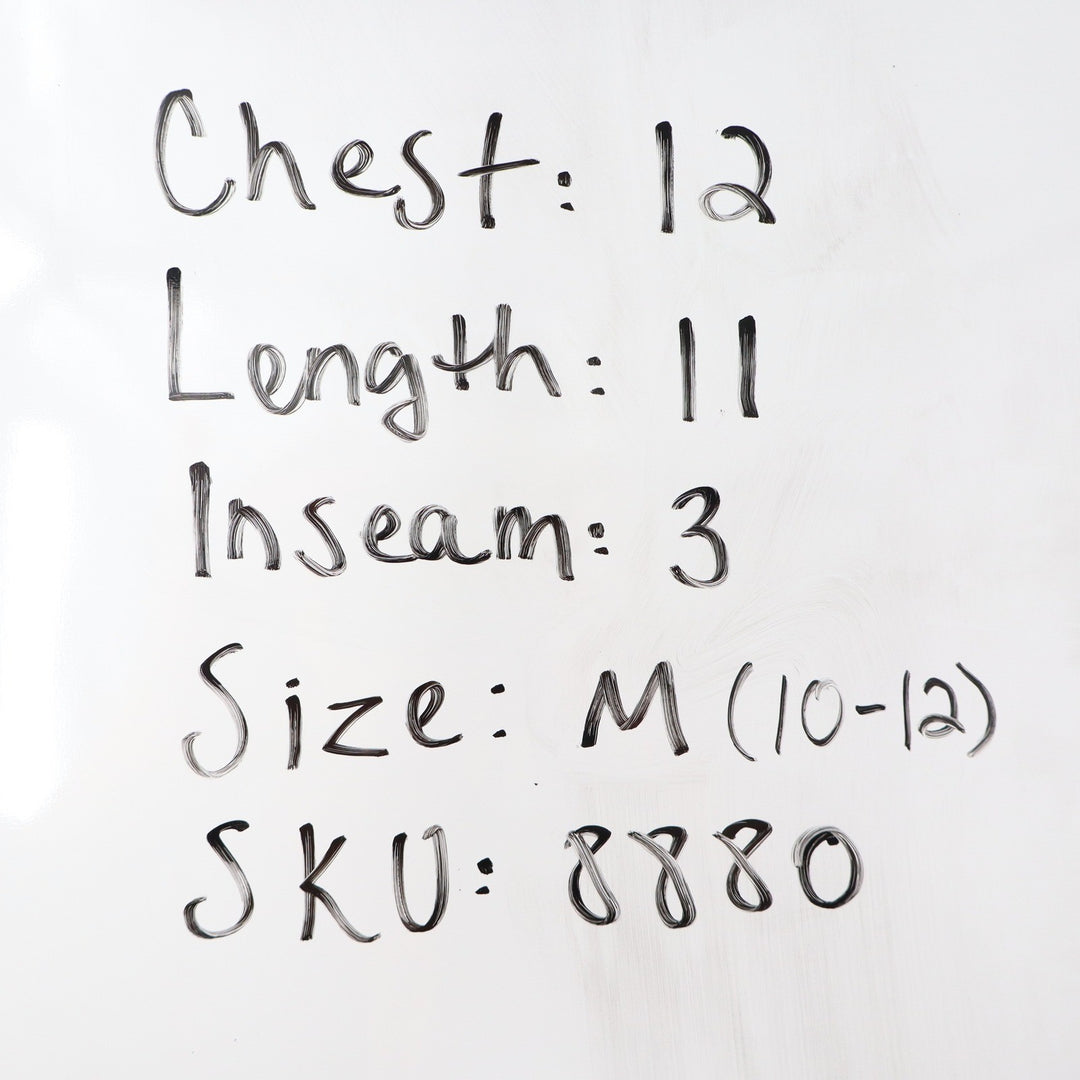 Chest: 12
Length: 11
Inseam: 3
Size: M (10-12)
SKU: 8880